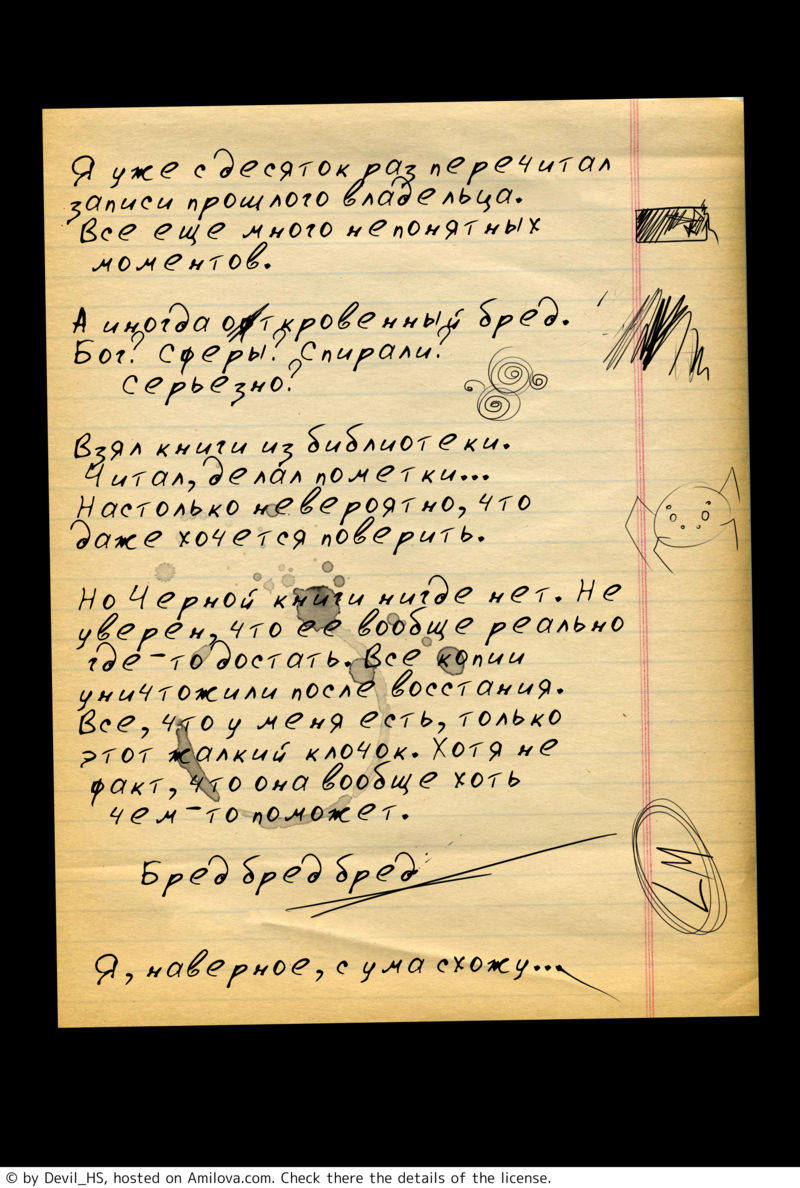 Я уже с десяток раз перечитал
записи прошлого владельца.
Все еще много непонятных
моментов.
А иногда откровенный бред.
Бог? Сферы? Спирали?
Серьезно?
Взял книги из библиотеки.
Читал, делал пометки...
Настолько невероятно, что
даже хочется поверить.
Но Черной книги нигде нет. Не
уверен, что ее вообще реально
где-то достать. Все копии
уничтожили после восстания.
Все, что у меня есть, только
этот жалкий клочок. Хотя не
факт, что она вообще хоть
чем-то поможет.
LM
Бред бред бред
Я, наверное, с ума схожу...
© by Devil_HS, hosted on Amilova.com. Check there the details of the license.